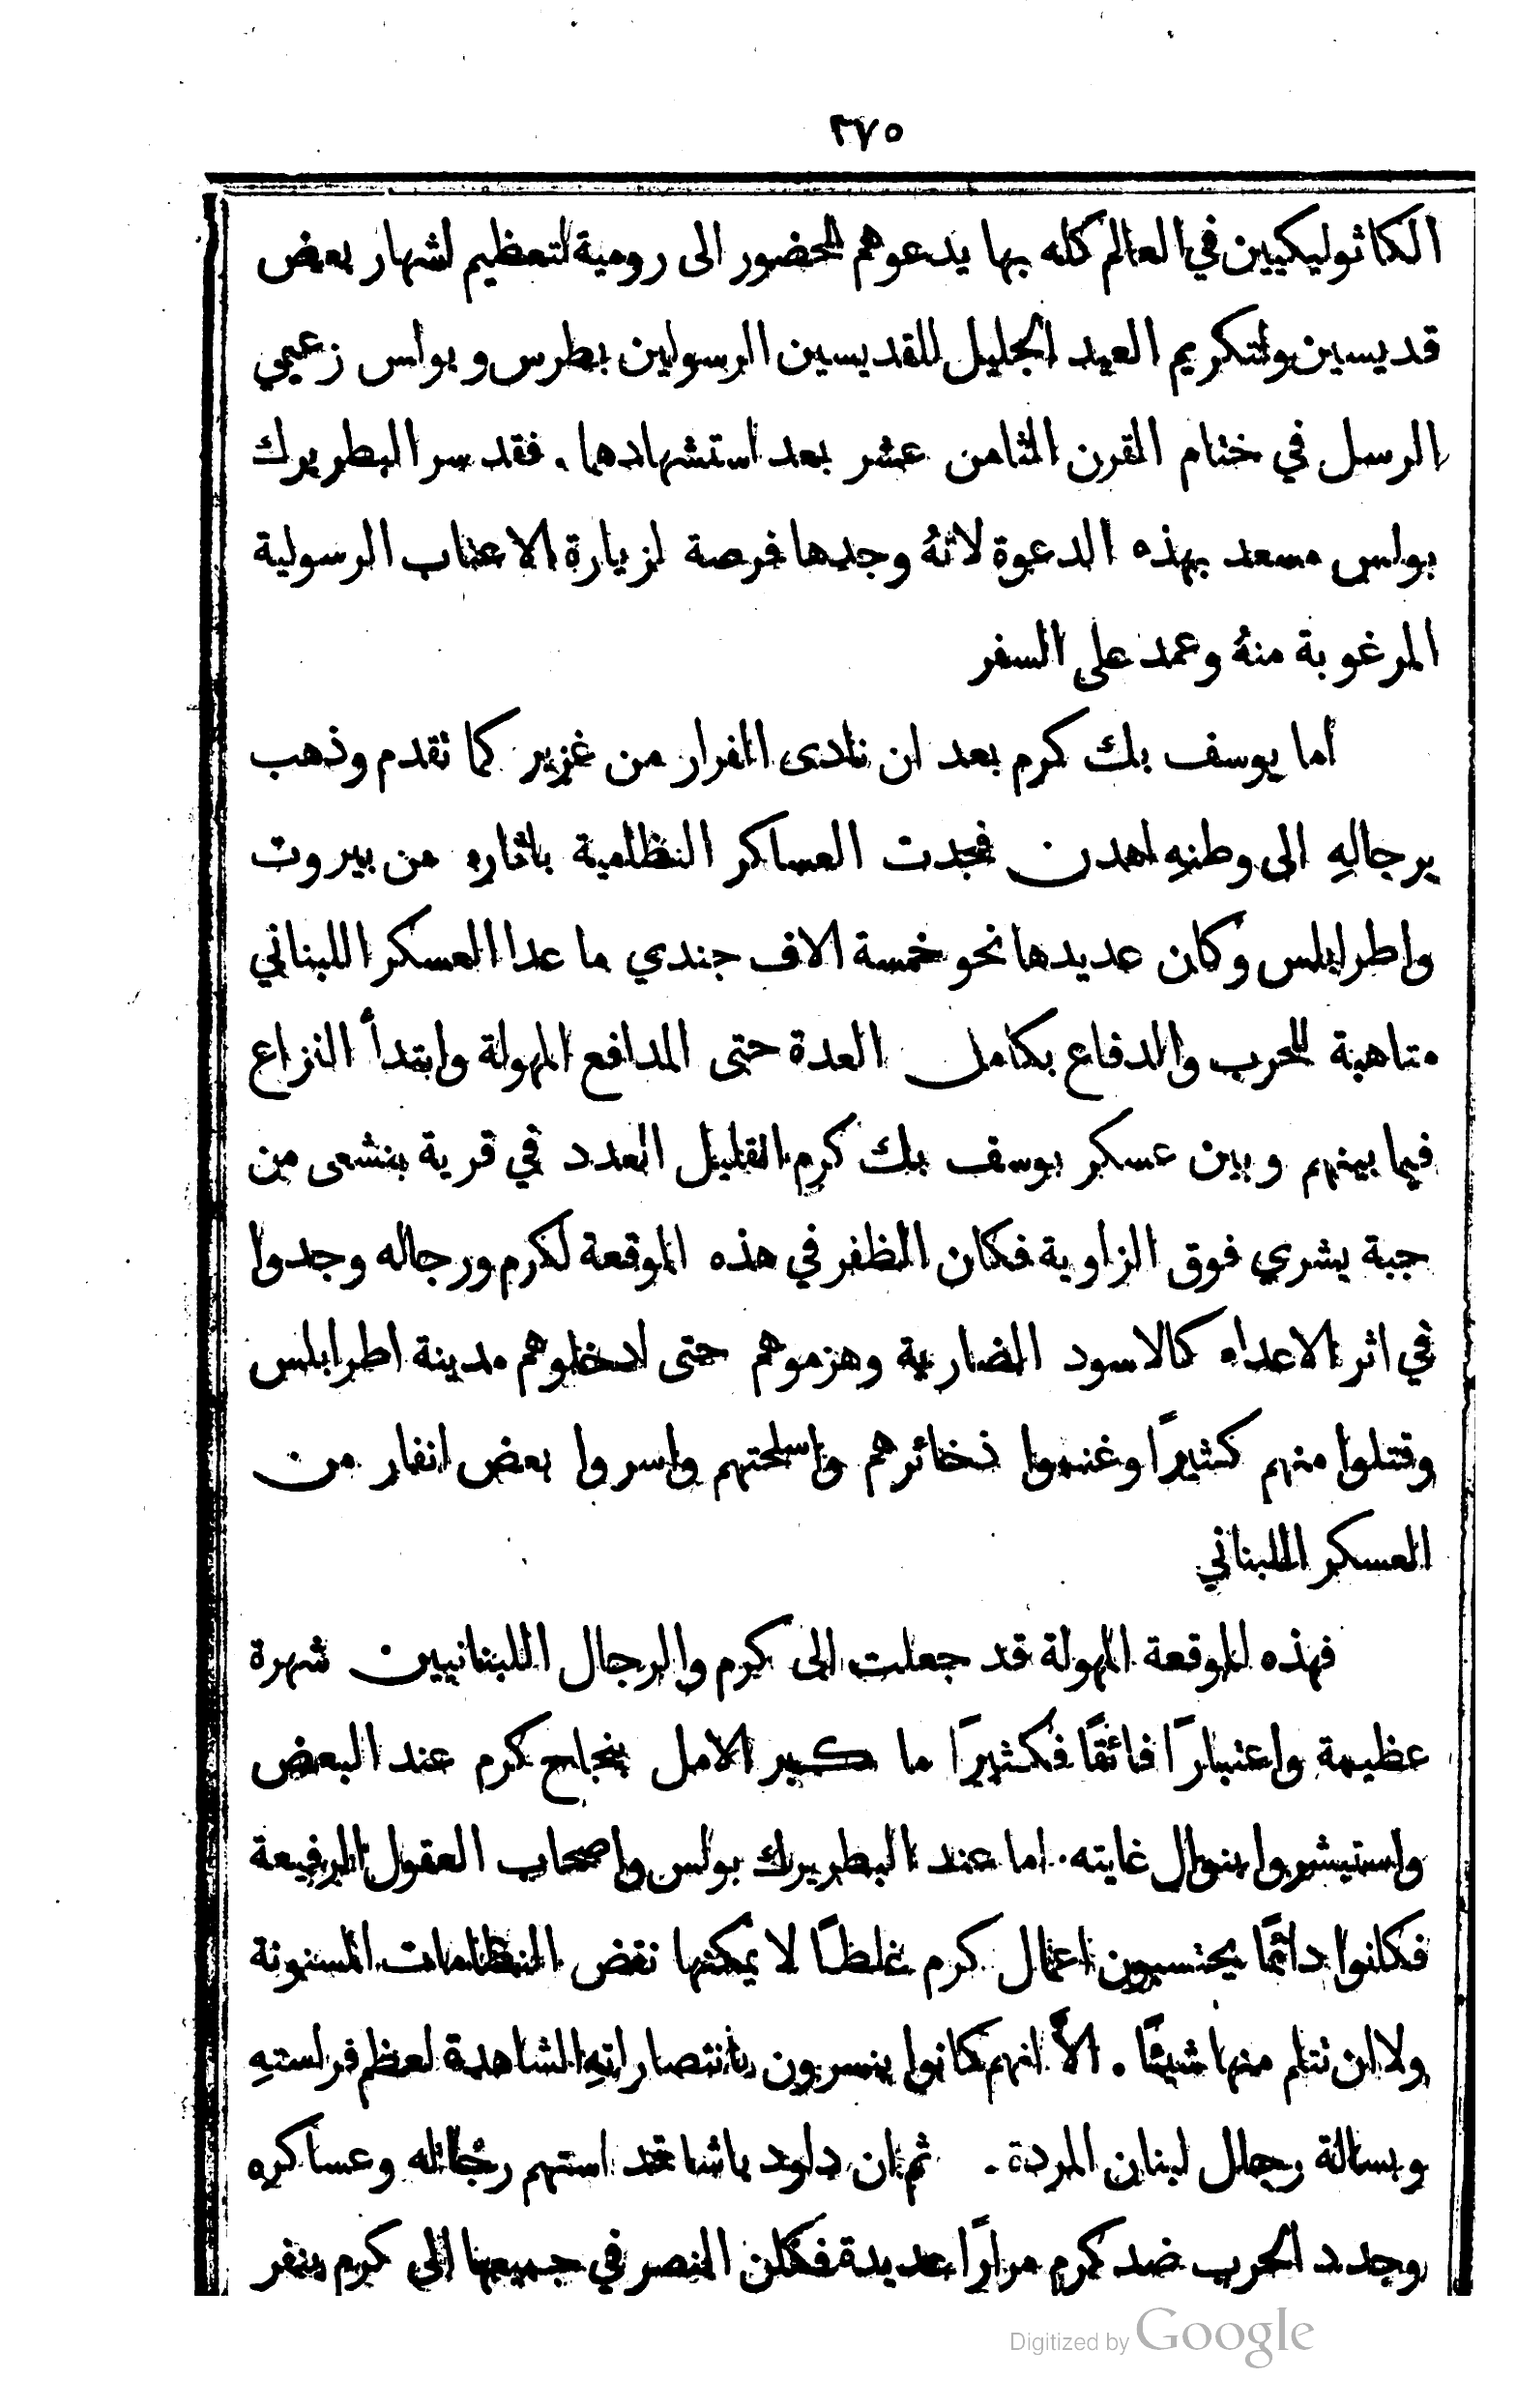 ٢٧٥
الكاثوليكيين في العالم كله بها يدعوهم للحضور الى رومية لتعظيم اشهار بعض
قديسين ولتكريم العيد الجليل للقديسين الرسولين بطرس وبولس زعيمي
الرسل في ختام القرن الثامن عشر بعد استشهادهما. فقد سر البطريرك
بولس مسعد بهذه الدعوة لانهُ وجدها فرصة لزيارة الاعتاب الرسولية
المرغوبة منهُ وعمد على السفر
اما يوسف بك كرم بعد ان نادى الفرار من غزير كما تقدم وذهب
برجالهِ الى وطنهِ اهدن فجدت العساكر النظامية باثاره من بيروت
واطرابلس وكان عديدها نحو خمسة الاف جندي ما عدا العسكر اللبناني
متاهبة للحرب والدفاع بكامل العدة حتى المدافع المهولة وابتدأ النزاع
فيما بينهم وبين عسكر يوسف بك كرم القليل العدد في قرية بنشعى من
جبة بشري فوق الزاوية فكان الظفر في هذه الموقعة لكرم ورجاله وجدوا
في اثر الاعداء كالاسود الضارية وهزموهم حتى ادخلوهم مدينة اطرابلس
وقتلوا منهم كثيرًا وغنموا ذخائرهم واسلحتهم واسروا بعض انفار من
العسكر اللبناني
فهذه الموقعة المهولة قد جعلت الى كرم والرجال اللبنانيين شهرة
عظيمة واعتبارًا فائقًا فكثيرًا ما كبير الامل بنجاح كرم عند البعض
واستبشروا بنوال غايته. اما عند البطريرك بولس واصحاب العقول الرفيعة
فكانوا دائمًا يحتسبون اعمال كرم غلطًا لا يمكنها نقض النظامات المسنونة
ولا ان تثلم منها شيئًا. الاَّ انهم كانوا ينسرون بانتصاراتهِ الشاهدة لعظم فراستهِ
وبسالة رجال لبنان المردة. ثم ان داود باشا قد استهم رجاله وعساكره
وجدد الحرب ضد كرم مرارًا عديدة فكان النصر في جميعها الى كرم بنفر
Digitized by Google